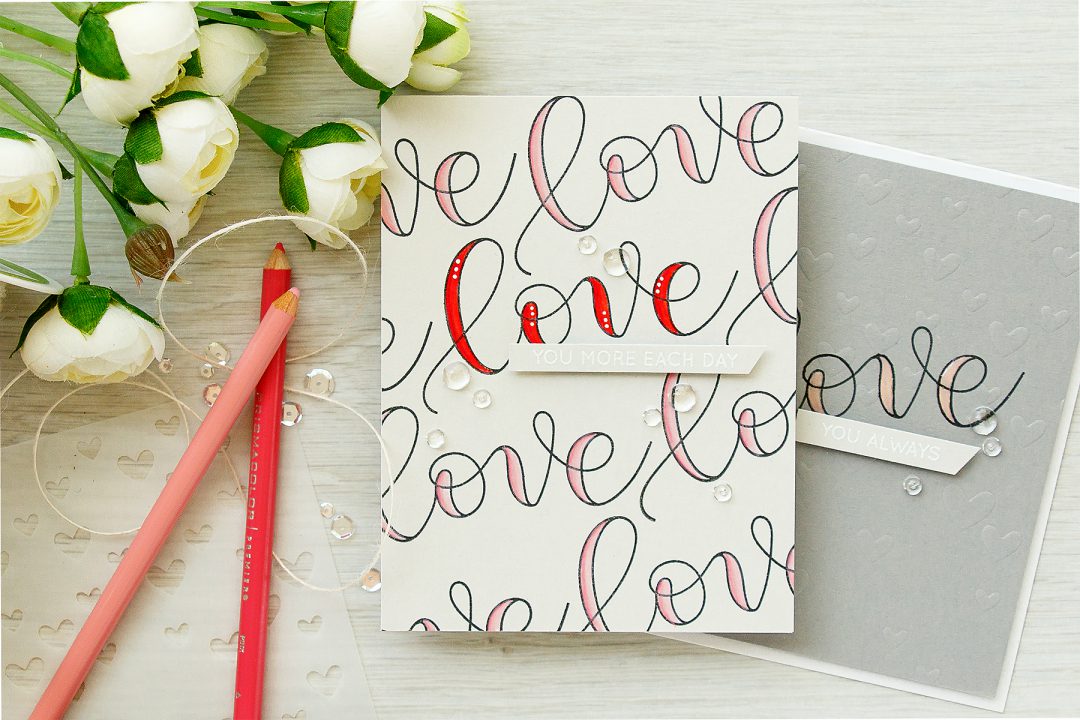 love
love
love
YOU MORE EACH DAY
love
YOU ALWAYS
love
love
love
love
PRISMACOLOR | PREMIER